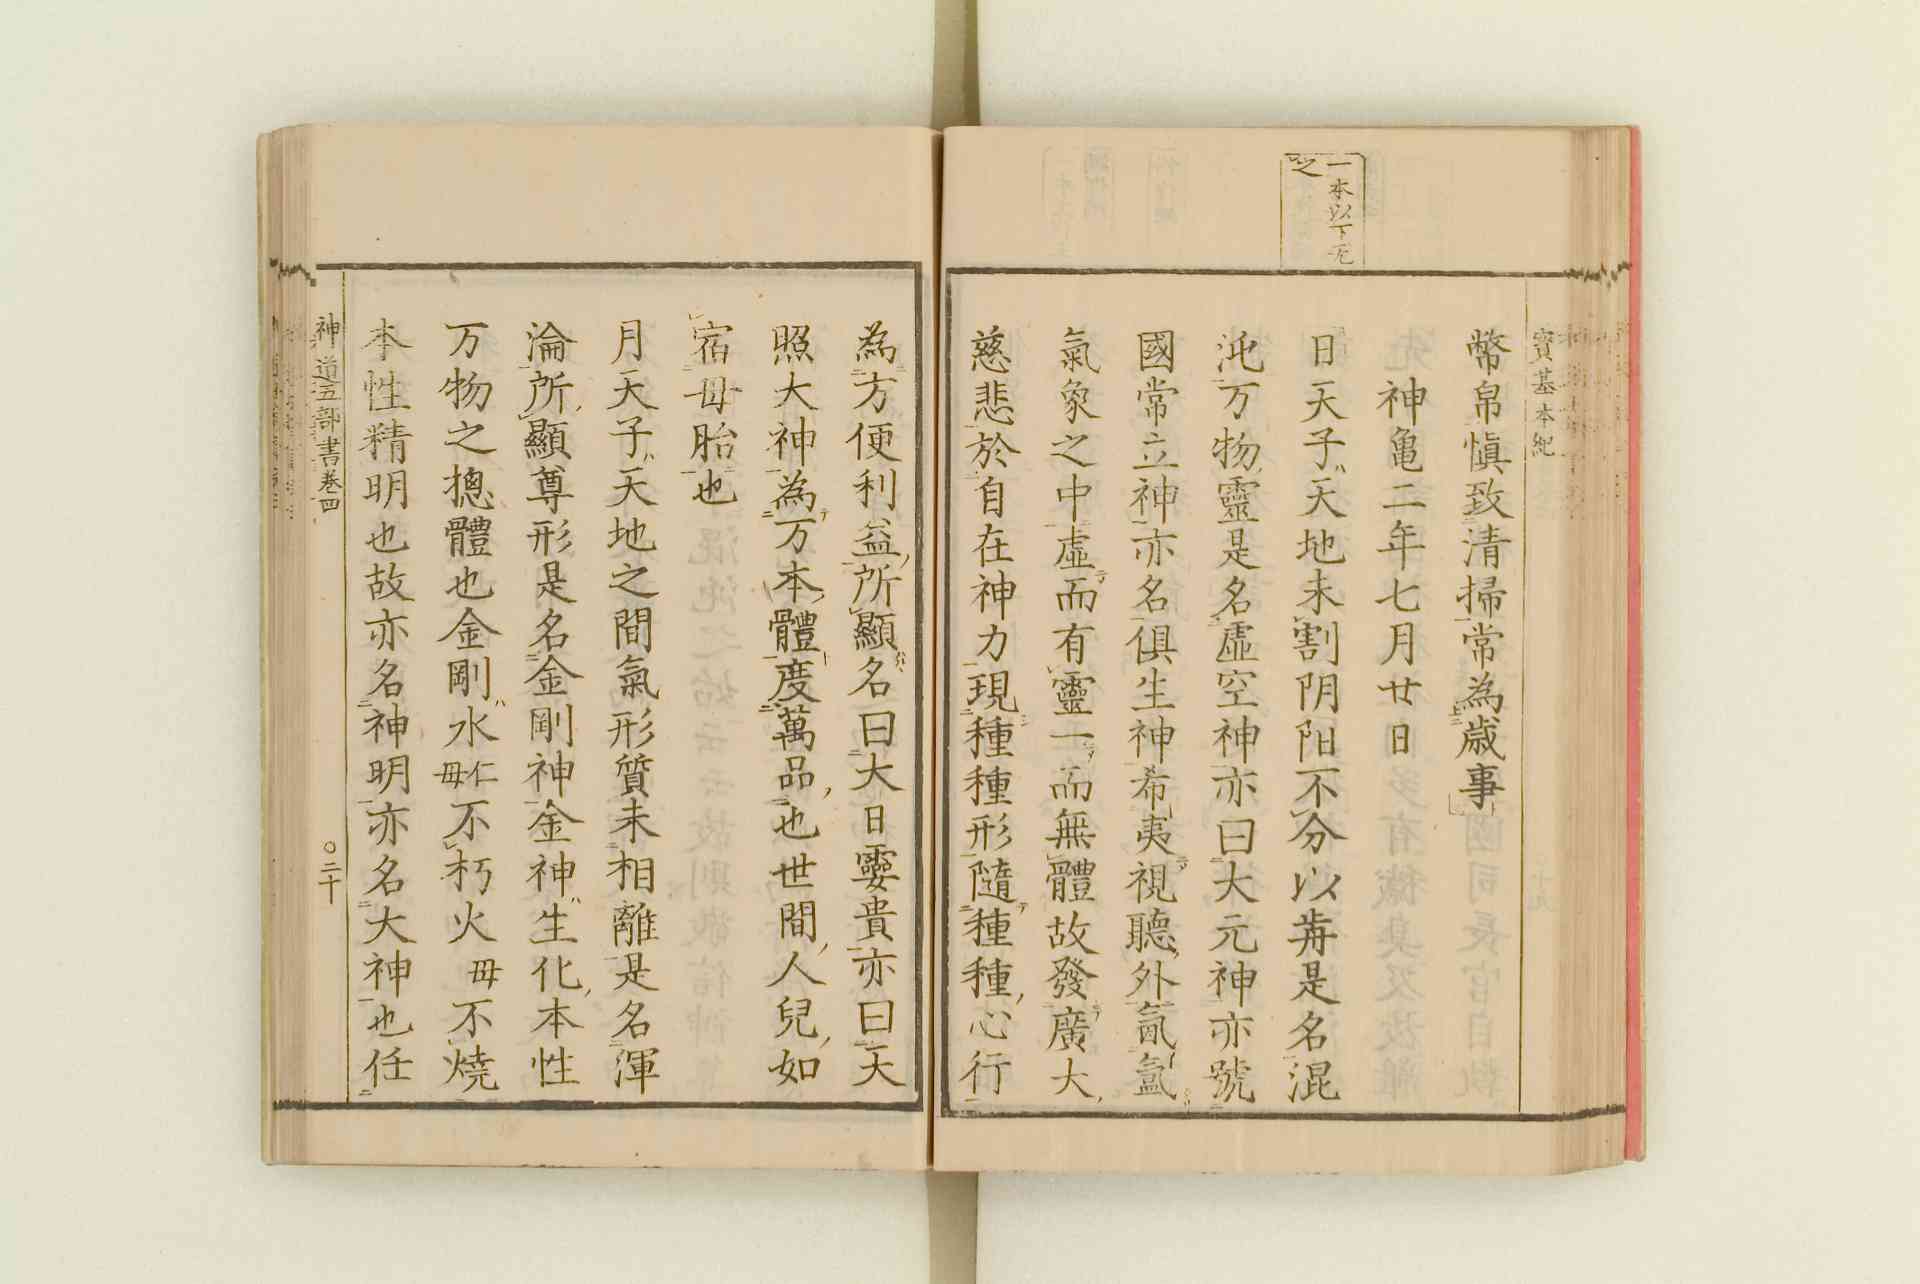 寳基本紀
一本以下无
之
幣帛愼致清掃常為歳事
神亀二年七月廿日
日天子天地未割阴阳不分以歬是名混
沌万物靈是名虚空神亦曰大元神亦號
國常立神亦名俱生神希夷視聽外氤氳
氣象之中虚而有靈一而無體故發廣大
慈悲於自在神力現種種形隨種種心行
為方便利益所顯名曰大日孁貴亦曰天
照大神為万本體度萬品也世間人兒如
宿母胎也
月天子天地之間氣形質未相離是名渾
淪所顯尊形是名金剛神金神生化本性
万物之揔體也金剛水仁毋不朽火毋不燒
本性精明也故亦名神明亦名大神也任
神道五部書巻四
〇二十